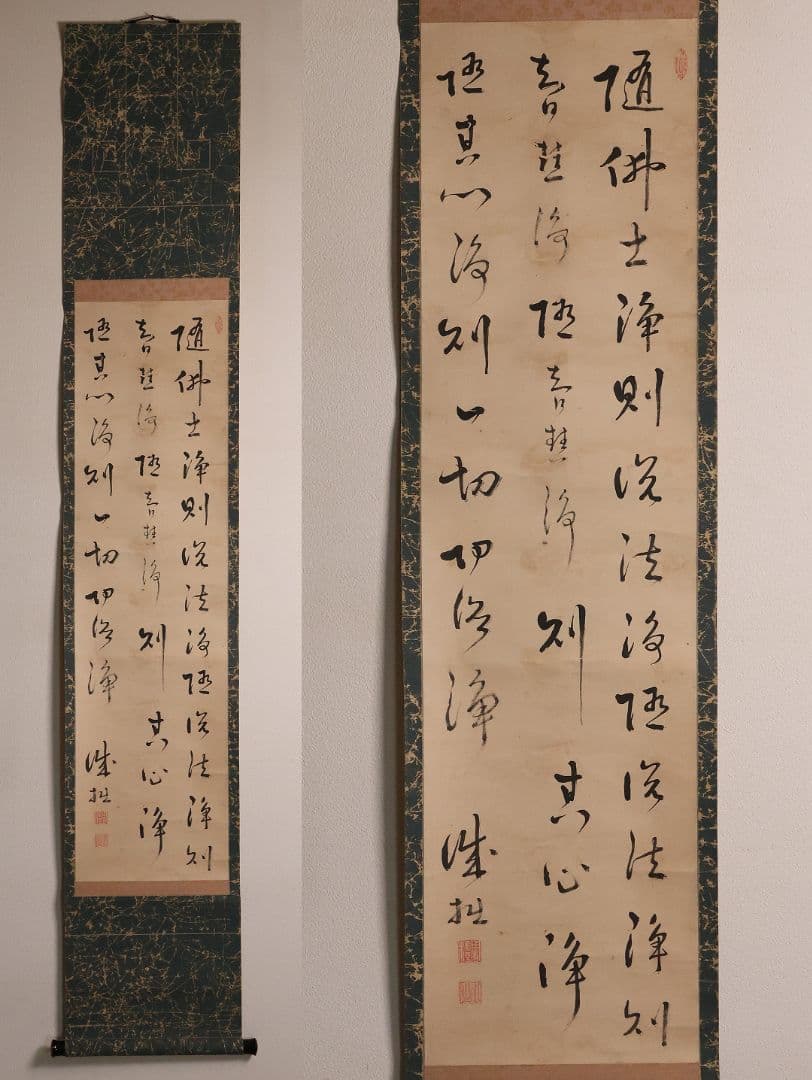 隨佛土淨則說法淨隨說法淨則
智慧淨隨智慧淨則其心淨
隨其心淨則一切功德淨
誠拙